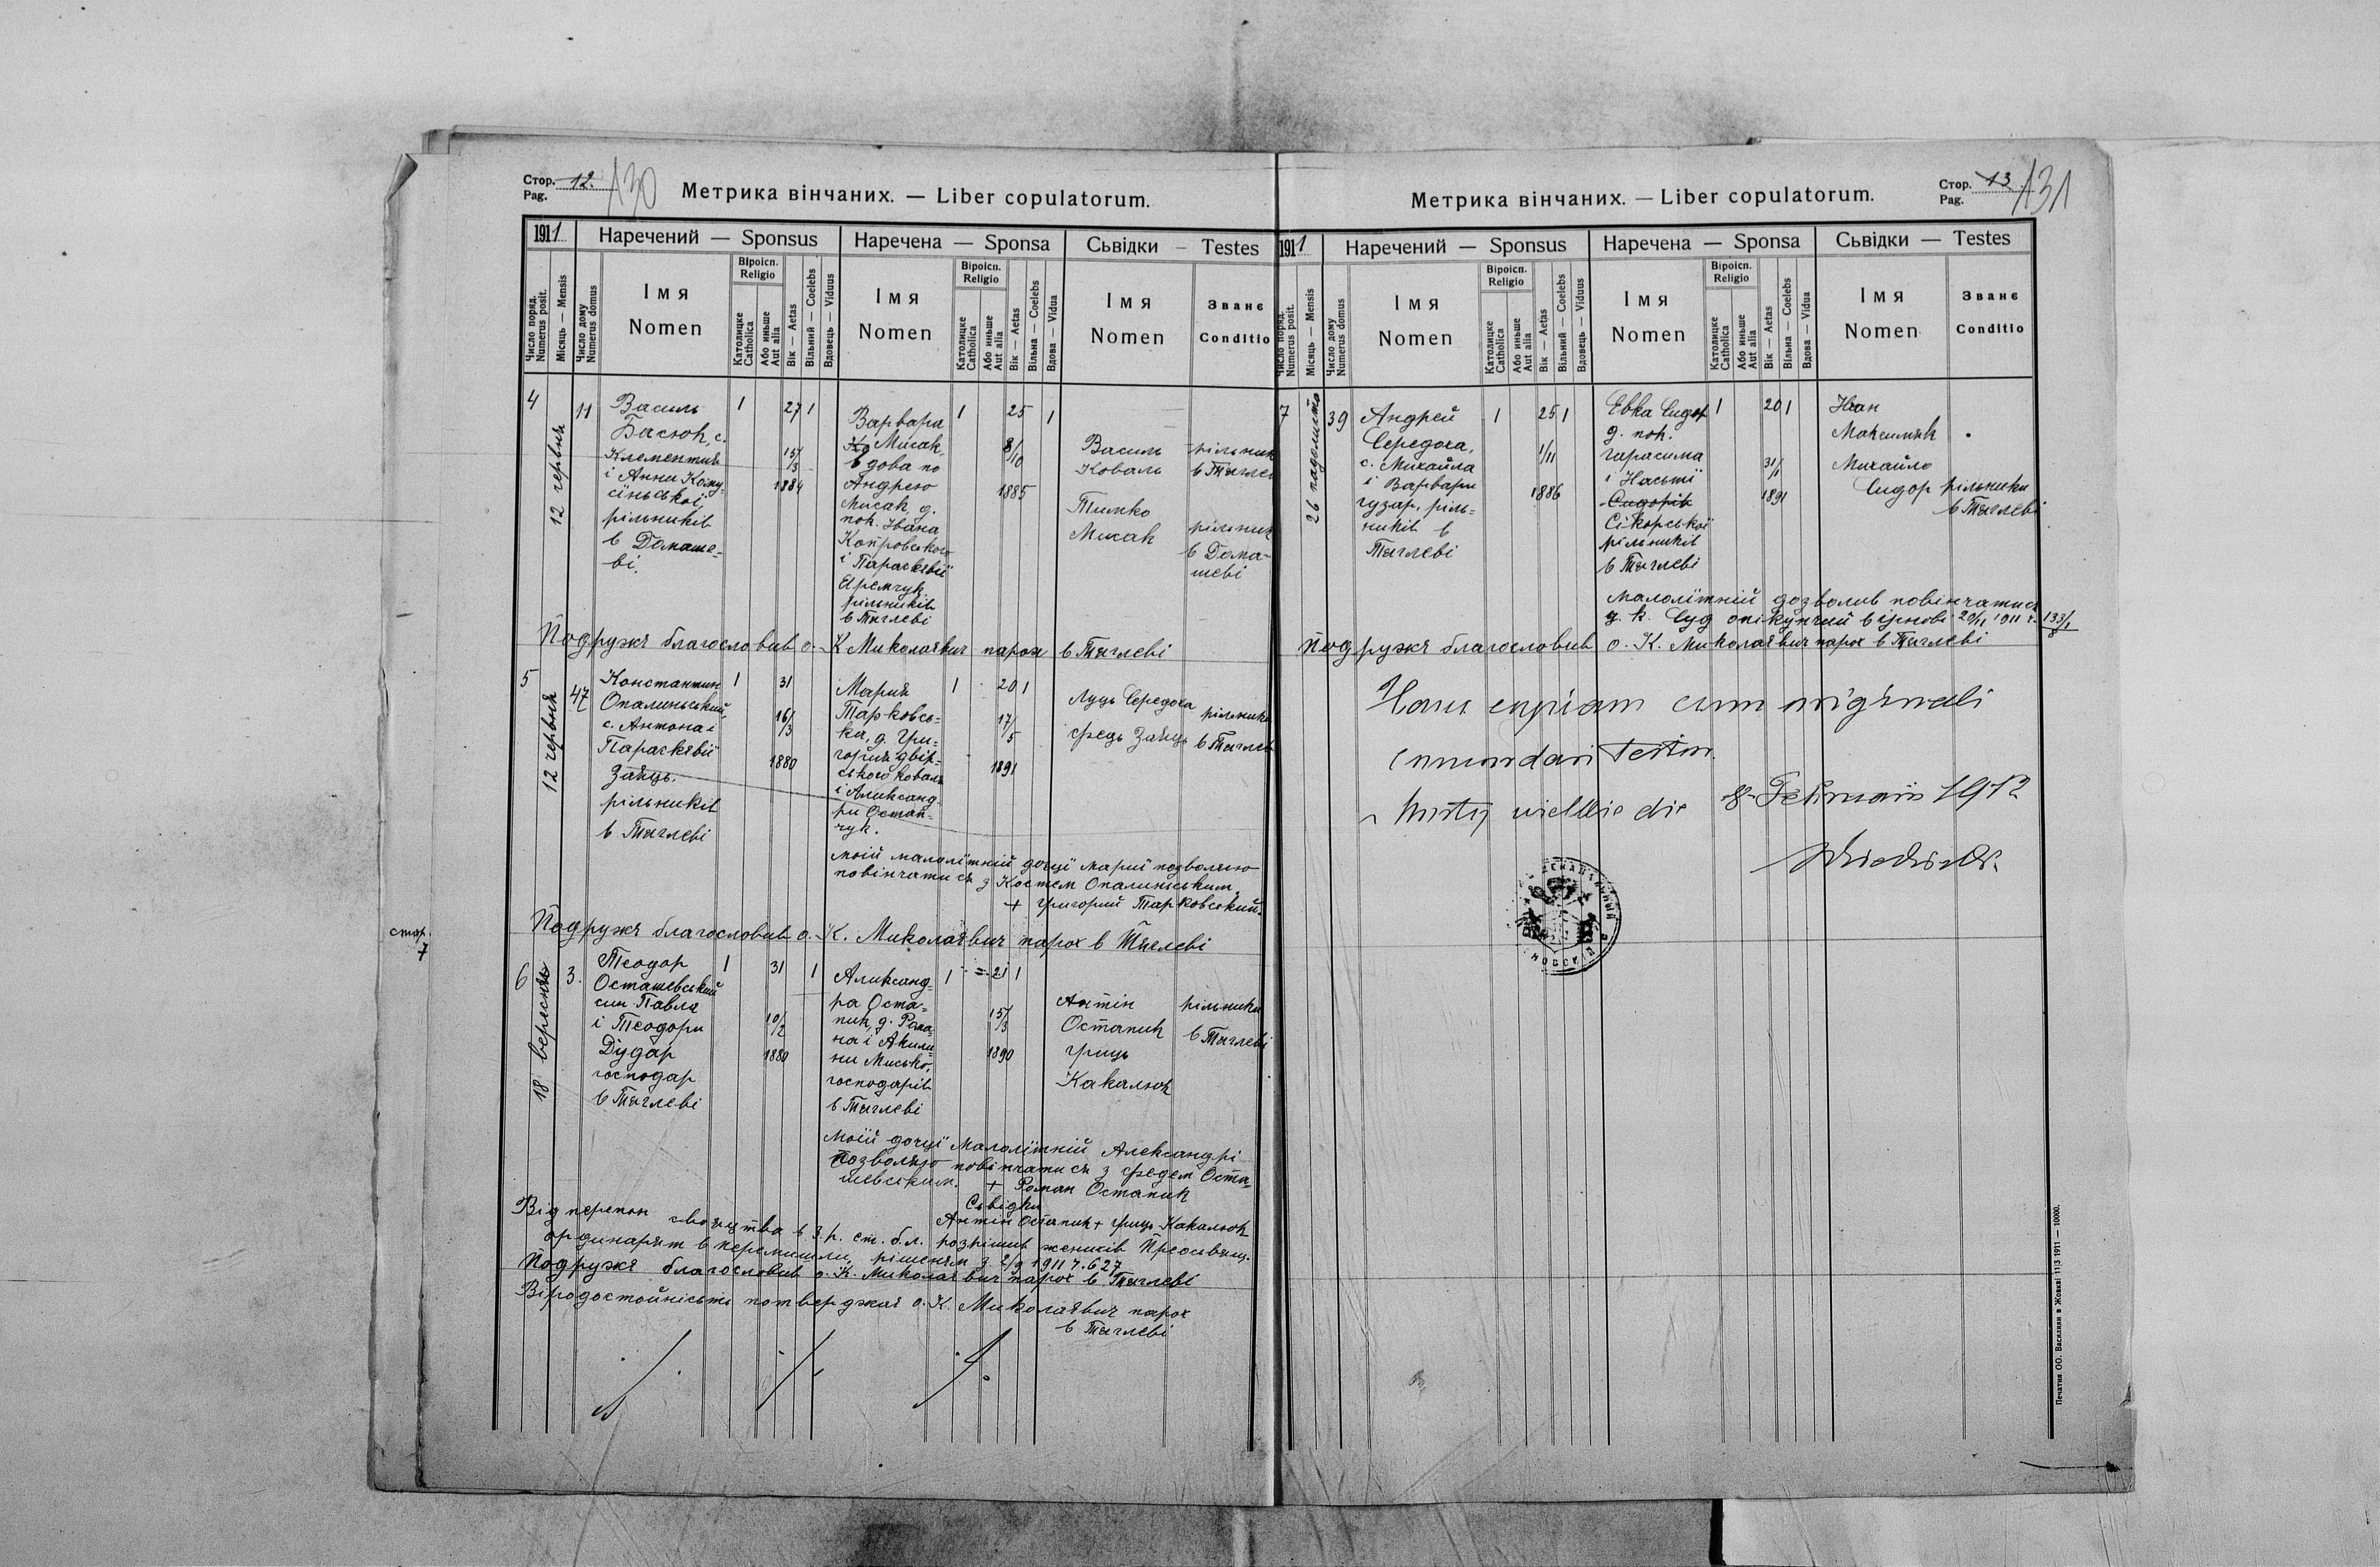 Стор. 12. 130
Pag.
Метрика вінчаних. — Liber copulatorum.
1911
Наречений — Sponsus
Наречена — Sponsa
Сьвідки – Testes
Число поряд.
Numerus posit.
Місяць — Mensis
Число дому
Numerus domus
Імя
Nomen
Віроісп.
Religio
Католицке
Catholica
Або иньше
Aut alia
Вік — Aetas
Вільний — Coelebs
Вдовець — Viduus
Імя
Nomen
Віроісп.
Religio
Католицке
Catholica
Або иньше
Aut alia
Вік — Aetas
Вільна — Coelebs
Вдова — Vidua
Імя
Nomen
Званє
Conditio
4
12 червня
11
Василь
Басюк, с.
Клементия
і Анни Кому-
сіньської,
рільників
в Домаше-
ві.
1
27 1
15/3
1884
Варвара
Мисак,
вдова по
Андрею
Мисак, д.
пок. Івана
і Параскевії
Яремчук
рільників
в Тяглеві
1
25
1
8/10
1885
Василь
Коваль
Тимко
Мисак
рільник
в Тяглев
рільник
в Дома-
шеві
Подружє благословив о. К Миколаєвич парох в Тяглеві
5
12 червня
47
Константин
Опалинський,
с. Антона і
Параскевії
Заяць.
рільників
в Тяглеві
1
31
16/3
1880
Мария
Тарковсь-
ка, д. Гри-
гория двір-
ського коваля
і Александ-
ри Остап-
чук.
1
20 1
17/5
1891
Луць Середоха
Фець Заяць
рільники
в Тяглев
моїй малолїтній дочцї Мариї позволяю
повінчати ся з Костем Опалинським.
+ Григорий Тарковський.
Подружє благословив о. К. Миколаєвич парох в Тяглеві
стор.
7
6
18 вересня
3.
Теодор
Осташевський
син Павла
і Теодори
Дудар
господар
в Тяглеві
1
31
1
10/2
1880
Александ-
ра Оста-
пик, д. Рома-
на і Акили-
ни Мисько,
господарів
в Тяглеві
1
21 1
15/3
1890
Антін
Остапик
Гриць
Какалюк
рільники
в Тяглеві
Моїй дочцї Малолїтній Александрі
позволяю повінчати ся з Федем Оста-
шевським. + Роман Остапик
Сьвідки
Антін Остапик + Гриць Какалюк
Від перепон свояцтва в 3. р. ст. б. л. розрішив жеників Преосвящ.
ординарят в Перемишли, рішенєм з 2/9 1911 Ч. 627
Подружє благословив о. К. Миколаєвич парох в Тяглеві
Віродостойність потверджає о. К. Миколаєвич парох
в Тяглеві
Стор. 13 131
Pag.
Метрика вінчаних. — Liber copulatorum.
1911
Наречений — Sponsus
Наречена — Sponsa
Сьвідки — Testes
Число поряд.
Numerus posit.
Місяць — Mensis
Число дому
Numerus domus
Імя
Nomen
Віроісп.
Religio
Католицке
Catholica
Або иньше
Aut alia
Вік — Aetas
Вільний — Coelebs
Вдовець — Viduus
Імя
Nomen
Віроісп.
Religio
Католицке
Catholica
Або иньше
Aut alia
Вік — Aetas
Вільна — Coelebs
Вдова — Vidua
Імя
Nomen
Званє
Conditio
7
26 падолиста
39
Андрей
Середоха,
с. Михайла
і Варвари
Гузар, ріль-
ників в
Тяглеві
1
25 1
1/11
1886
Евка Сидор
д. пок.
Гарасима
і Насьтї
Сидорів
Сікорської
рільників
в Тяглеві
1
20 1
31/1
1891
Іван
Максимяк
Михайло
Сидор
рільники
в Тяглеві
Малолїтній дозволив повінчати ся
ц. к. Суд опікунчий в Угнові 20/11 1911 133/1
8
Подружє благословив о. К. Миколаєвич парох в Тяглеві
Hanc copiam cum originali
concordari testor.
die 8 Februarii 1912
Печатня ОО. Василиян в Жовкві 11|3 1911 — 10000.